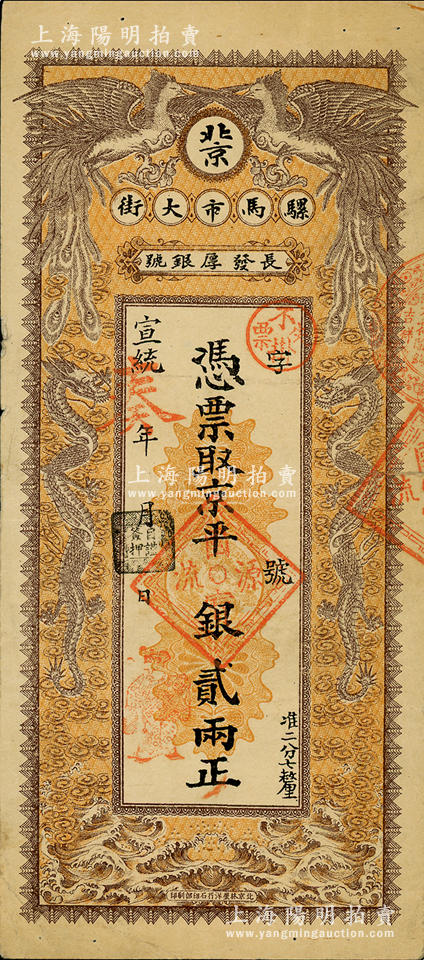 上海陽明拍賣
www.yangmingauction.com
北京
騾馬市大街
長發厚銀號
字
號
准二分七釐
憑票取京平銀貳兩正
宣統
年
月
日
上海陽明拍賣
www.yangmingauction.com
源
流
票
上海陽明拍賣
www.yangmingauction.com